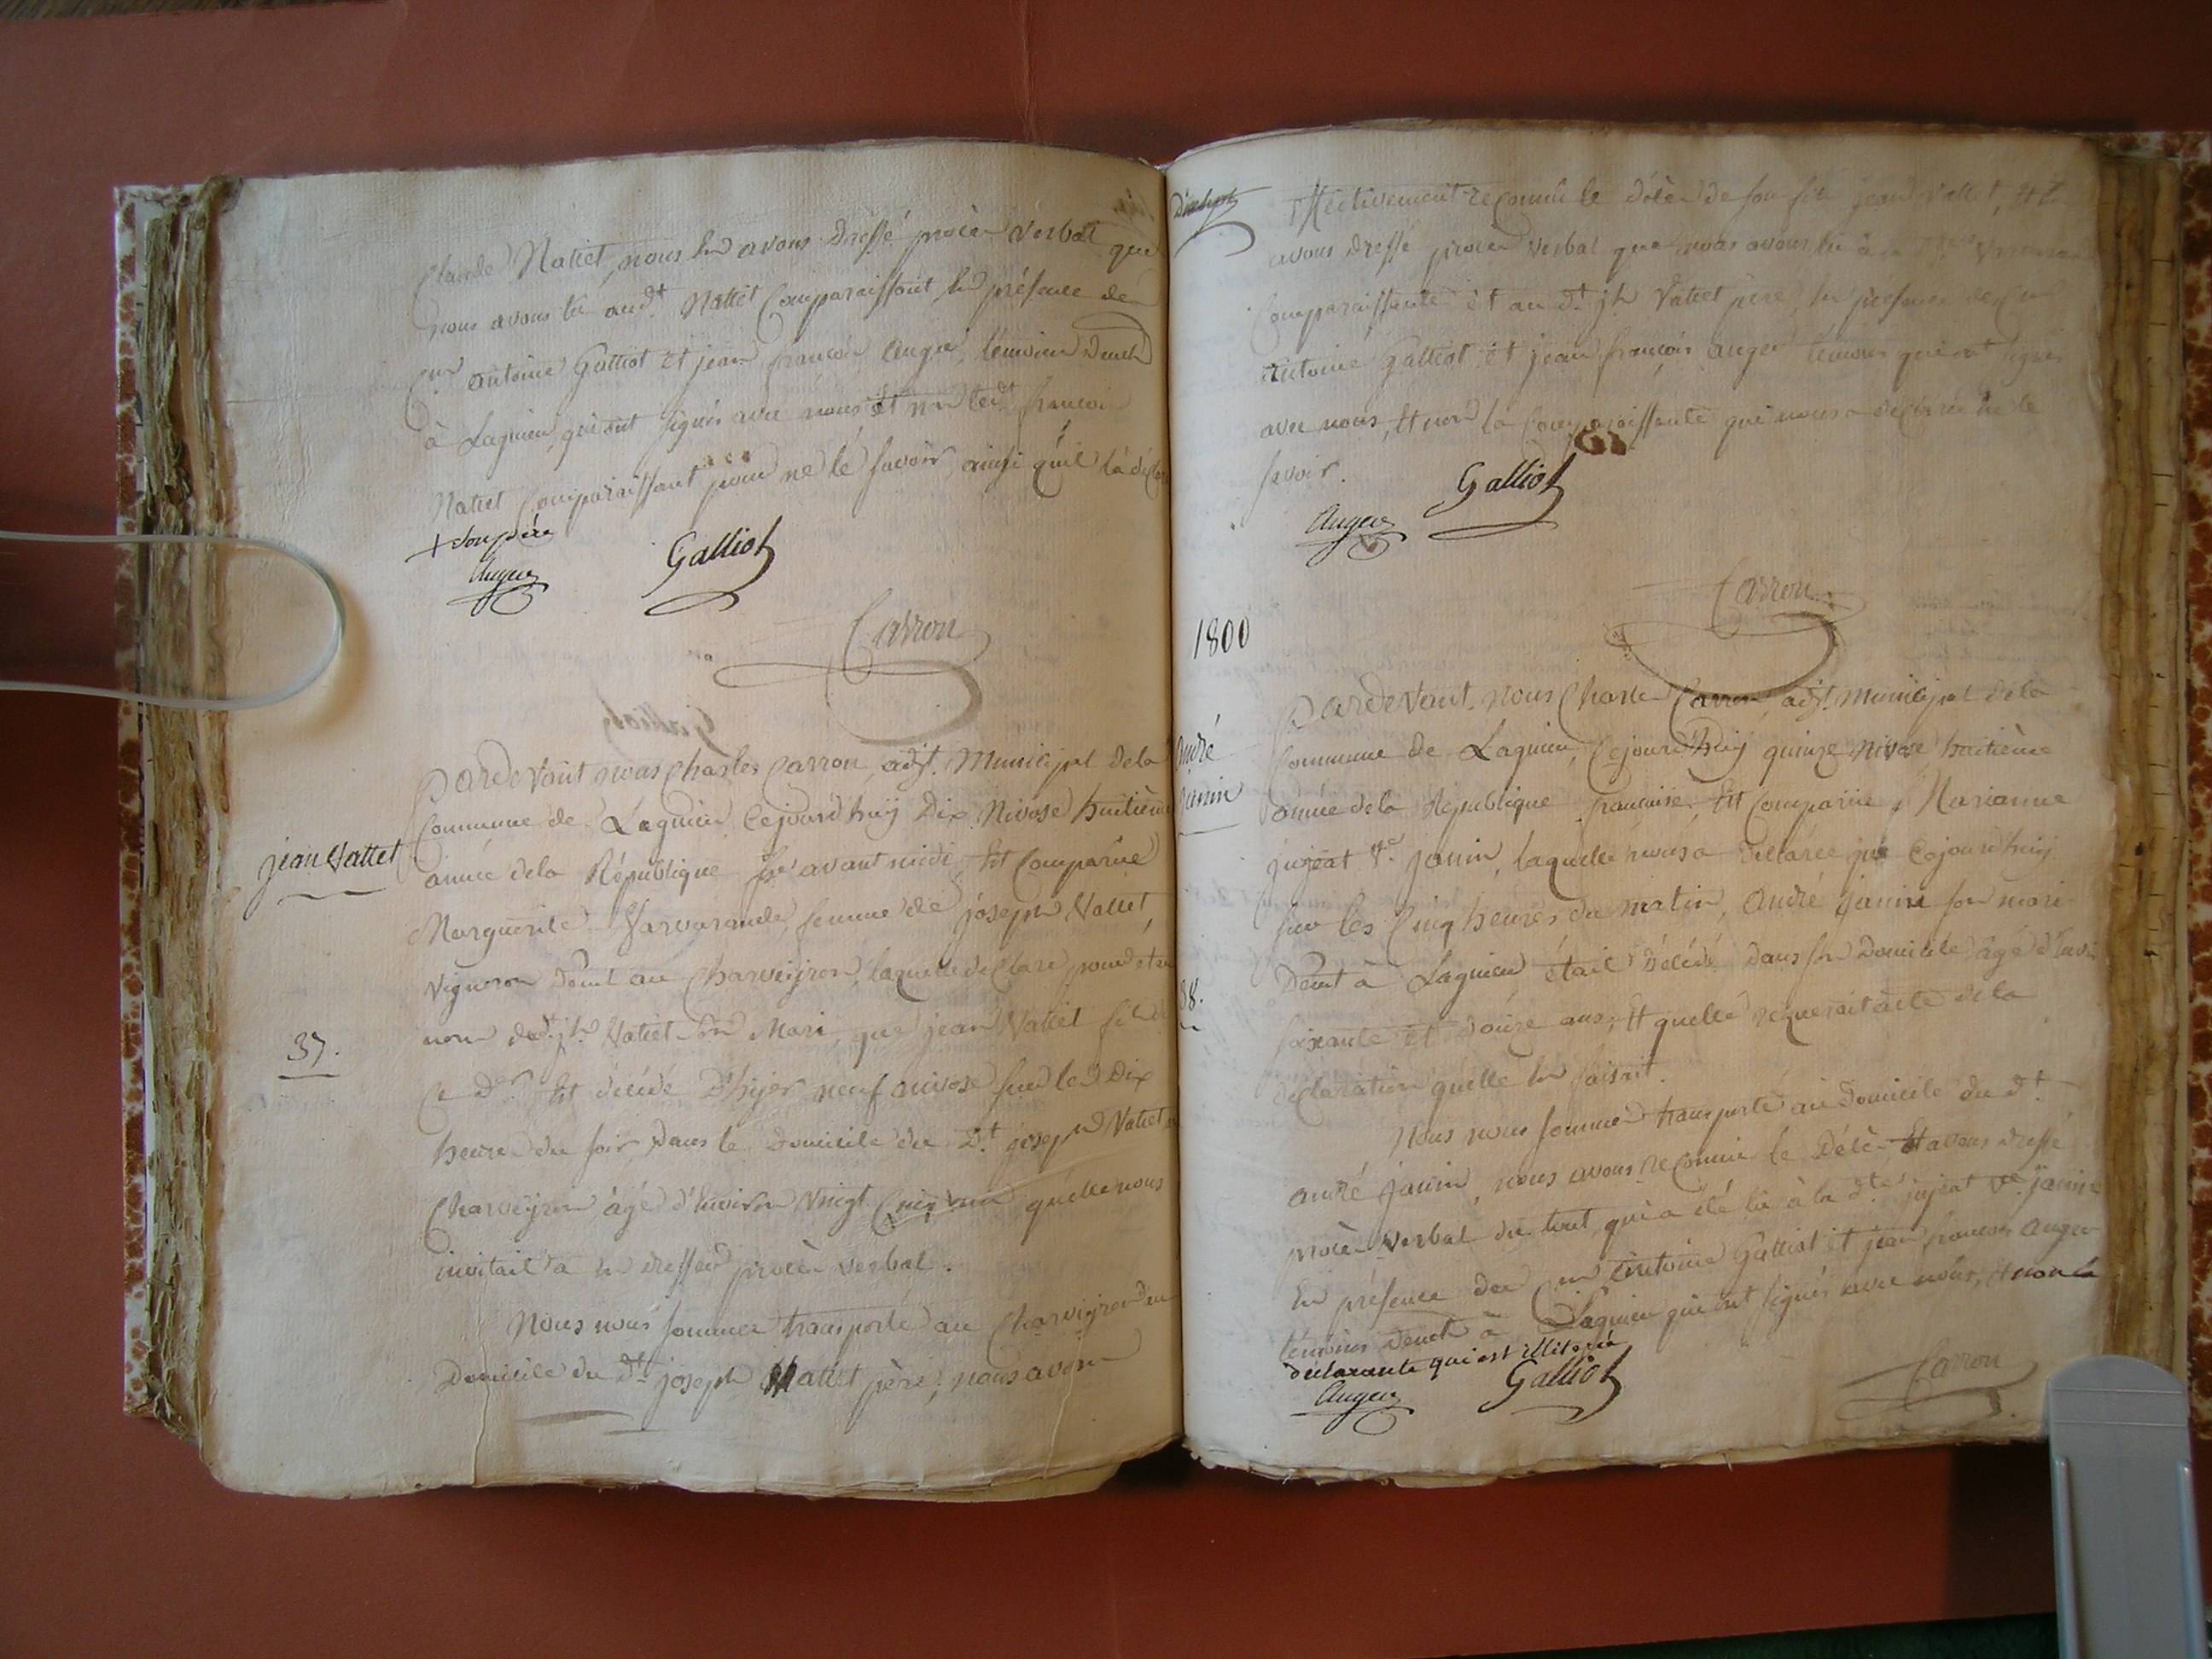 Claude Natiet, nous en avons dressé procès verbal que
nous avons lu aud.t Nattet Comparaissant en présence de
Cns antoine Galliot et jean françois auger, témoins demts
à Lagnieu, qui ont signés avec nous et non ledt françois
Natiet Comparaissant pour ne le savoir, ainsi qu'il l'a déclaré
+ son père
Auger
Galliot
Carron
Pardevant nous Charles Carron, adjt. Municipal de la
Commune de Lagnieu, Cejourd'huy Dix Nivose huitième
année de la République fse avant midi, Est Comparüe
jean Vattet
Marguerite femme de joseph Vallet,
vigneron demt au Charveyron, laquelle déclare pour et au
nom dud. jh Vatiet son Mari, que jean Vattet fils de
37.
Ce der Est décédé D'hyer neuf nivose sur les Dix
heures du soir, dans le Domicile du D.t joseph Vatiet au
Charveyron, âgé d'Environ vingt Cinq ans qu'elle nous
invitait a en dresser procès verbal.
Nous nous sommes transporté au Charveyron au
Domicile du dt joseph Vatiet père, nous avons
Effectivement reconnu le décès de son fils jean Vallet, et en
avons dressé procès verbal que nous avons lu à la
Comparaissante et au dt. jh Vatiet père, en présence des Cns
antoine Galliot et jean françois auger témoins qui ont signés
avec nous, Et non la Comparaissante qui nous a déclaré ne le
savoir.
Auger
Galliot
Carron
1800
Pardevant nous Charles Carron, adjt. municipal de la
Commune de Lagnieu, Cejourd'huy quinze Nivose huitième
andré
janin
année de la République française, Est Comparüe, Marianne
jujeat ve. janin, laquelle nous a déclarée que Cejourd'huy
sur les Cinq heures du matin, André janin son mari
Demt à Lagnieu était décédé dans son Domicile âgé d'Environ
38.
soixante et douze ans, Et quelle requerait acte de la
déclaration qu'elle en faisait.
Nous nous sommes transporté au domicile du dt.
andré janin, nous avons reconnu le Décès Et avons dressé
procès verbal du tout, qui a été lû à la dte jujeat ve janin
En présence des Cns antoine Galliot et jean françois auger
témoins demts à Lagnieu qui ont signés avec nous, et non la
déclarante qui est illiterée
Auger
Galliot
Carron